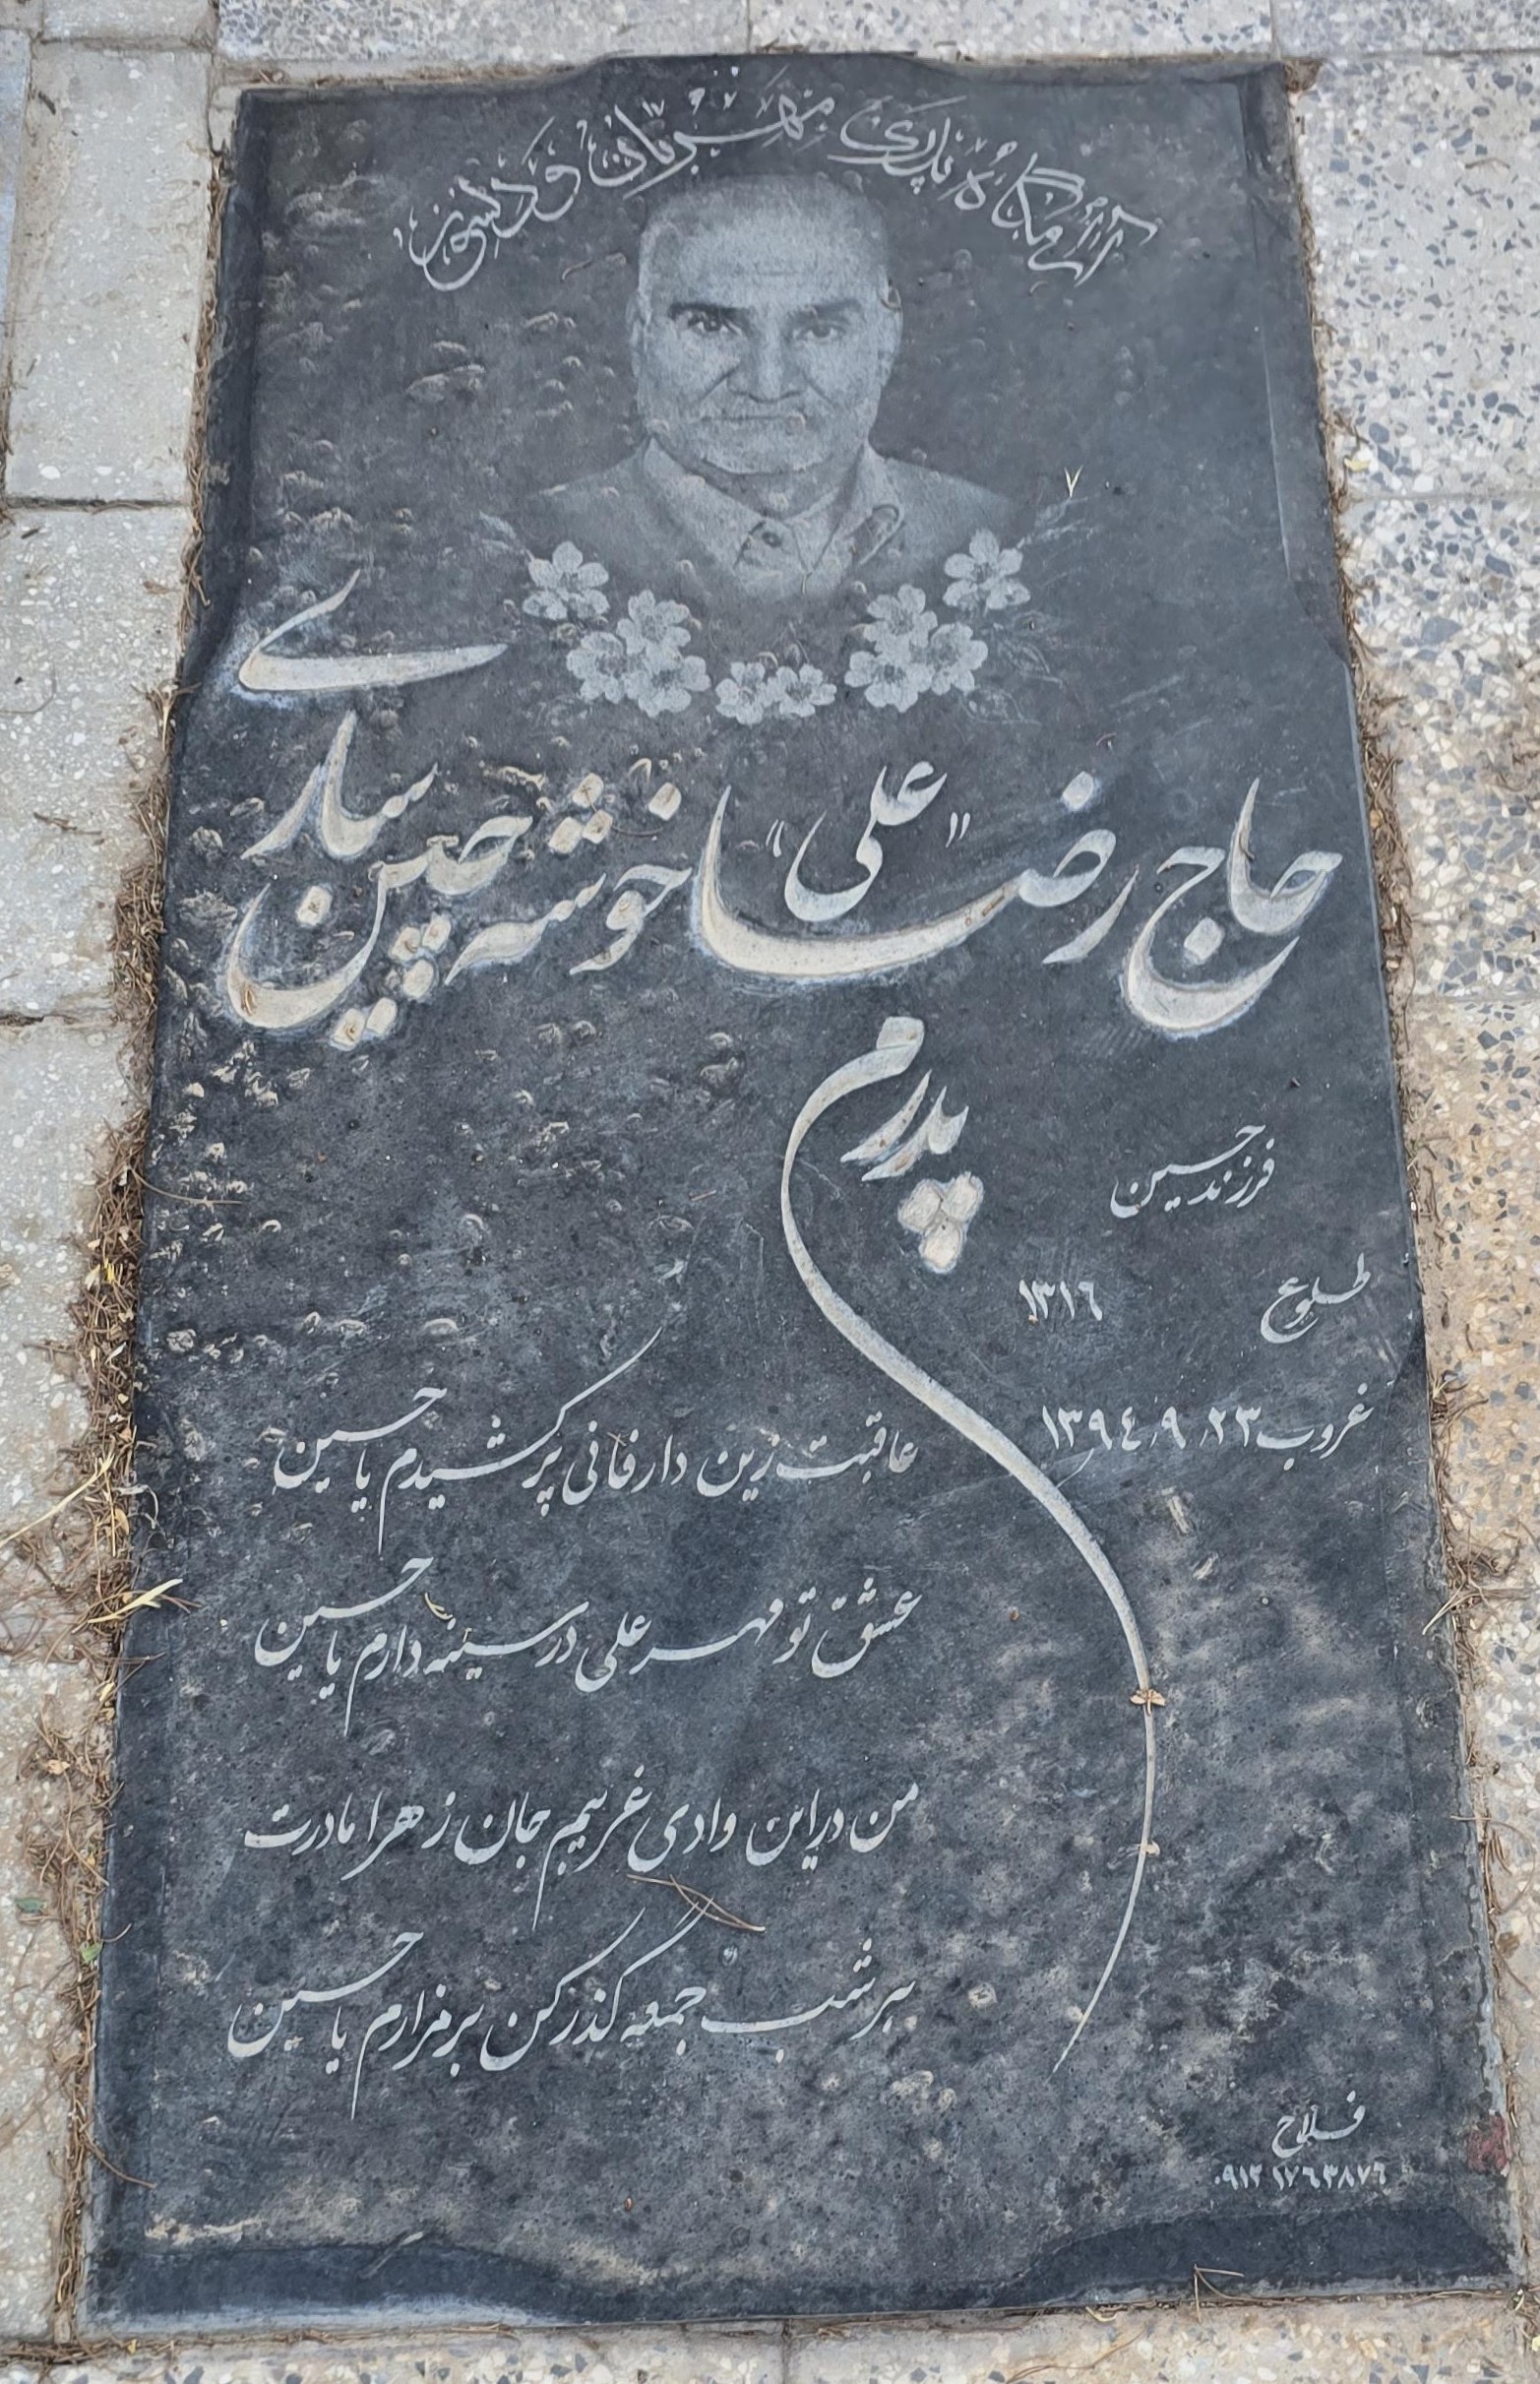 آرامگاه پدری مهربان و دلسوز
حاج رضا "علی" خوشه چین ساری
پدرم
فرزند حسین
طلوع ۱۳۱۶
غروب ۱۳۹٤٫۹٫۲۳
عاقبت زین دار فانی پر کشیدم یا حسین
عشق تو مهر علی در سینه دارم یا حسین
من در این وادی غریبم جان زهرا مادرت
هر شب جمعه گذر کن بر مزارم یا حسین
فلاح
۰۹۱۲ ۱۷٦۳۸۷٦